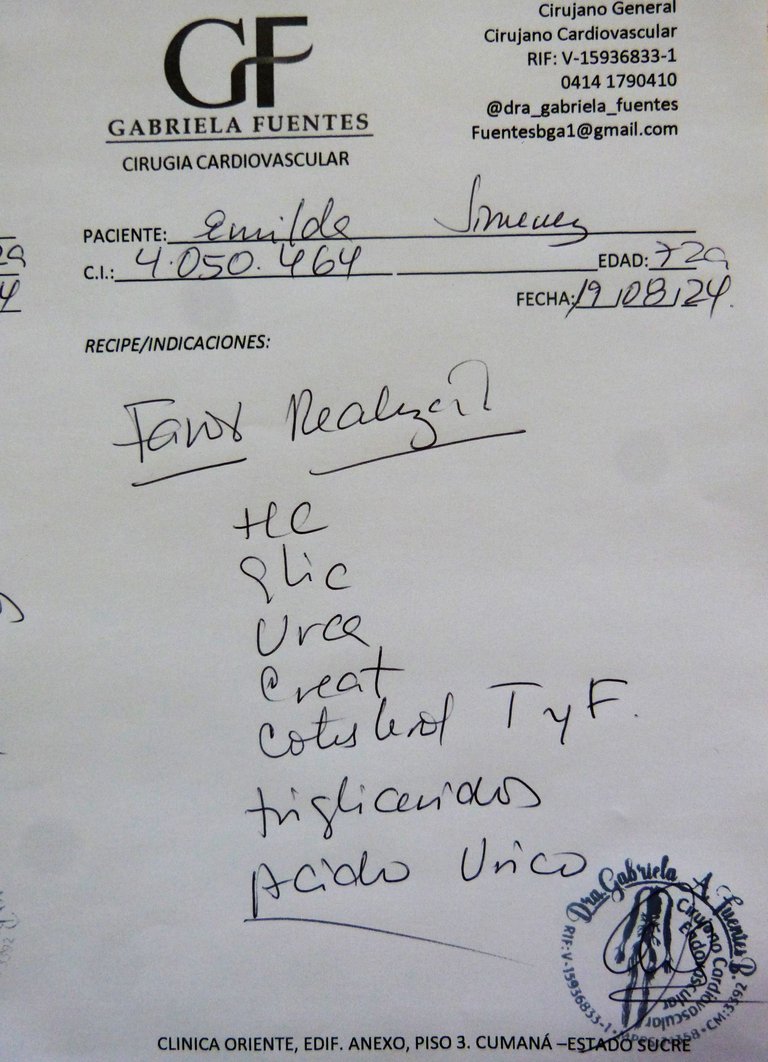 GF
GABRIELA FUENTES
CIRUGIA CARDIOVASCULAR
Cirujano General
Cirujano Cardiovascular
RIF: V-15936833-1
0414 1790410
@dra_gabriela_fuentes
Fuentesbga1@gmail.com
PACIENTE: Emilde Jimenez
C.I.: 4.050.464 EDAD: 72a
FECHA: 19/08/24.
RECIPE/INDICACIONES:
Favor Realizar
HC
Glic
Urea
Creat
Cotesterol T y F.
trigliceridos
Acido Urico
Dra. Gabriela A. Fuentes B.
Cirujano Cardiovascular
Endovascular
RIF: V-15936833-1 CM: 3392
CLINICA ORIENTE, EDIF. ANEXO, PISO 3. CUMANÁ –ESTADO SUCRE